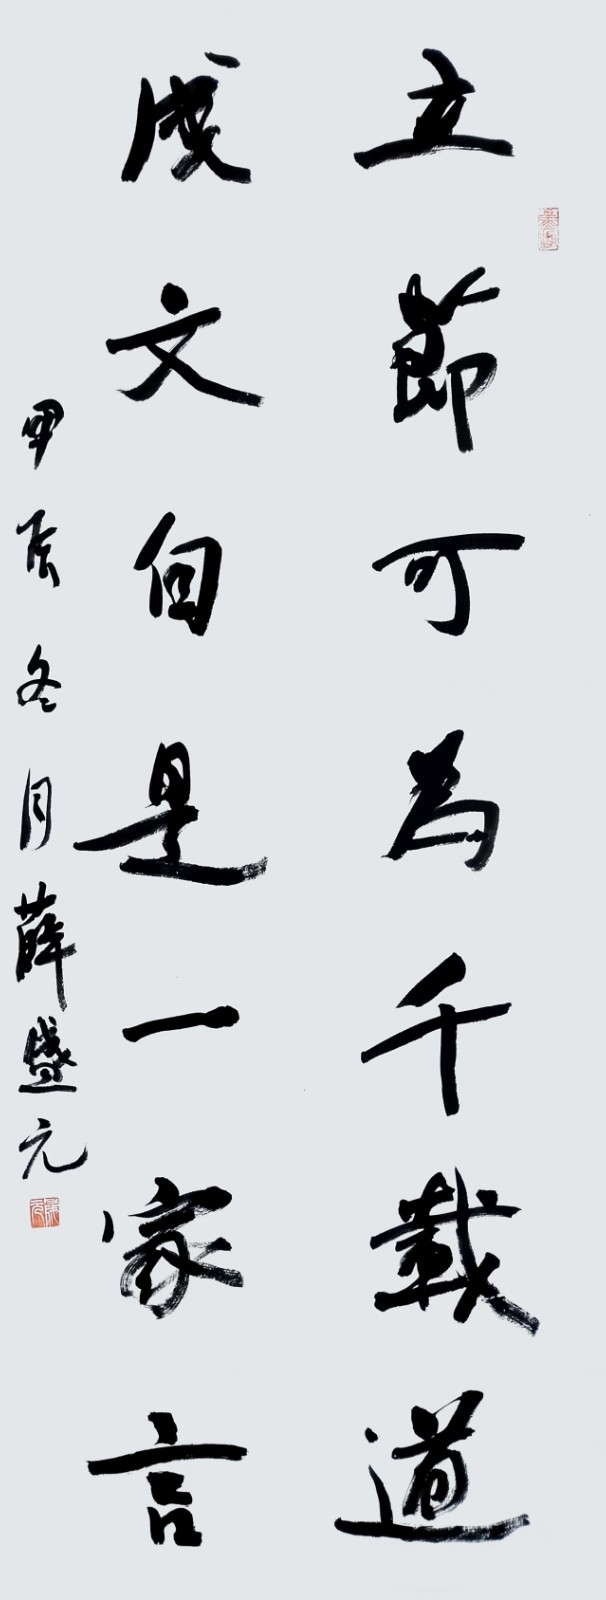 立節可為千載道
成文自是一家言
甲辰冬月薛盛元